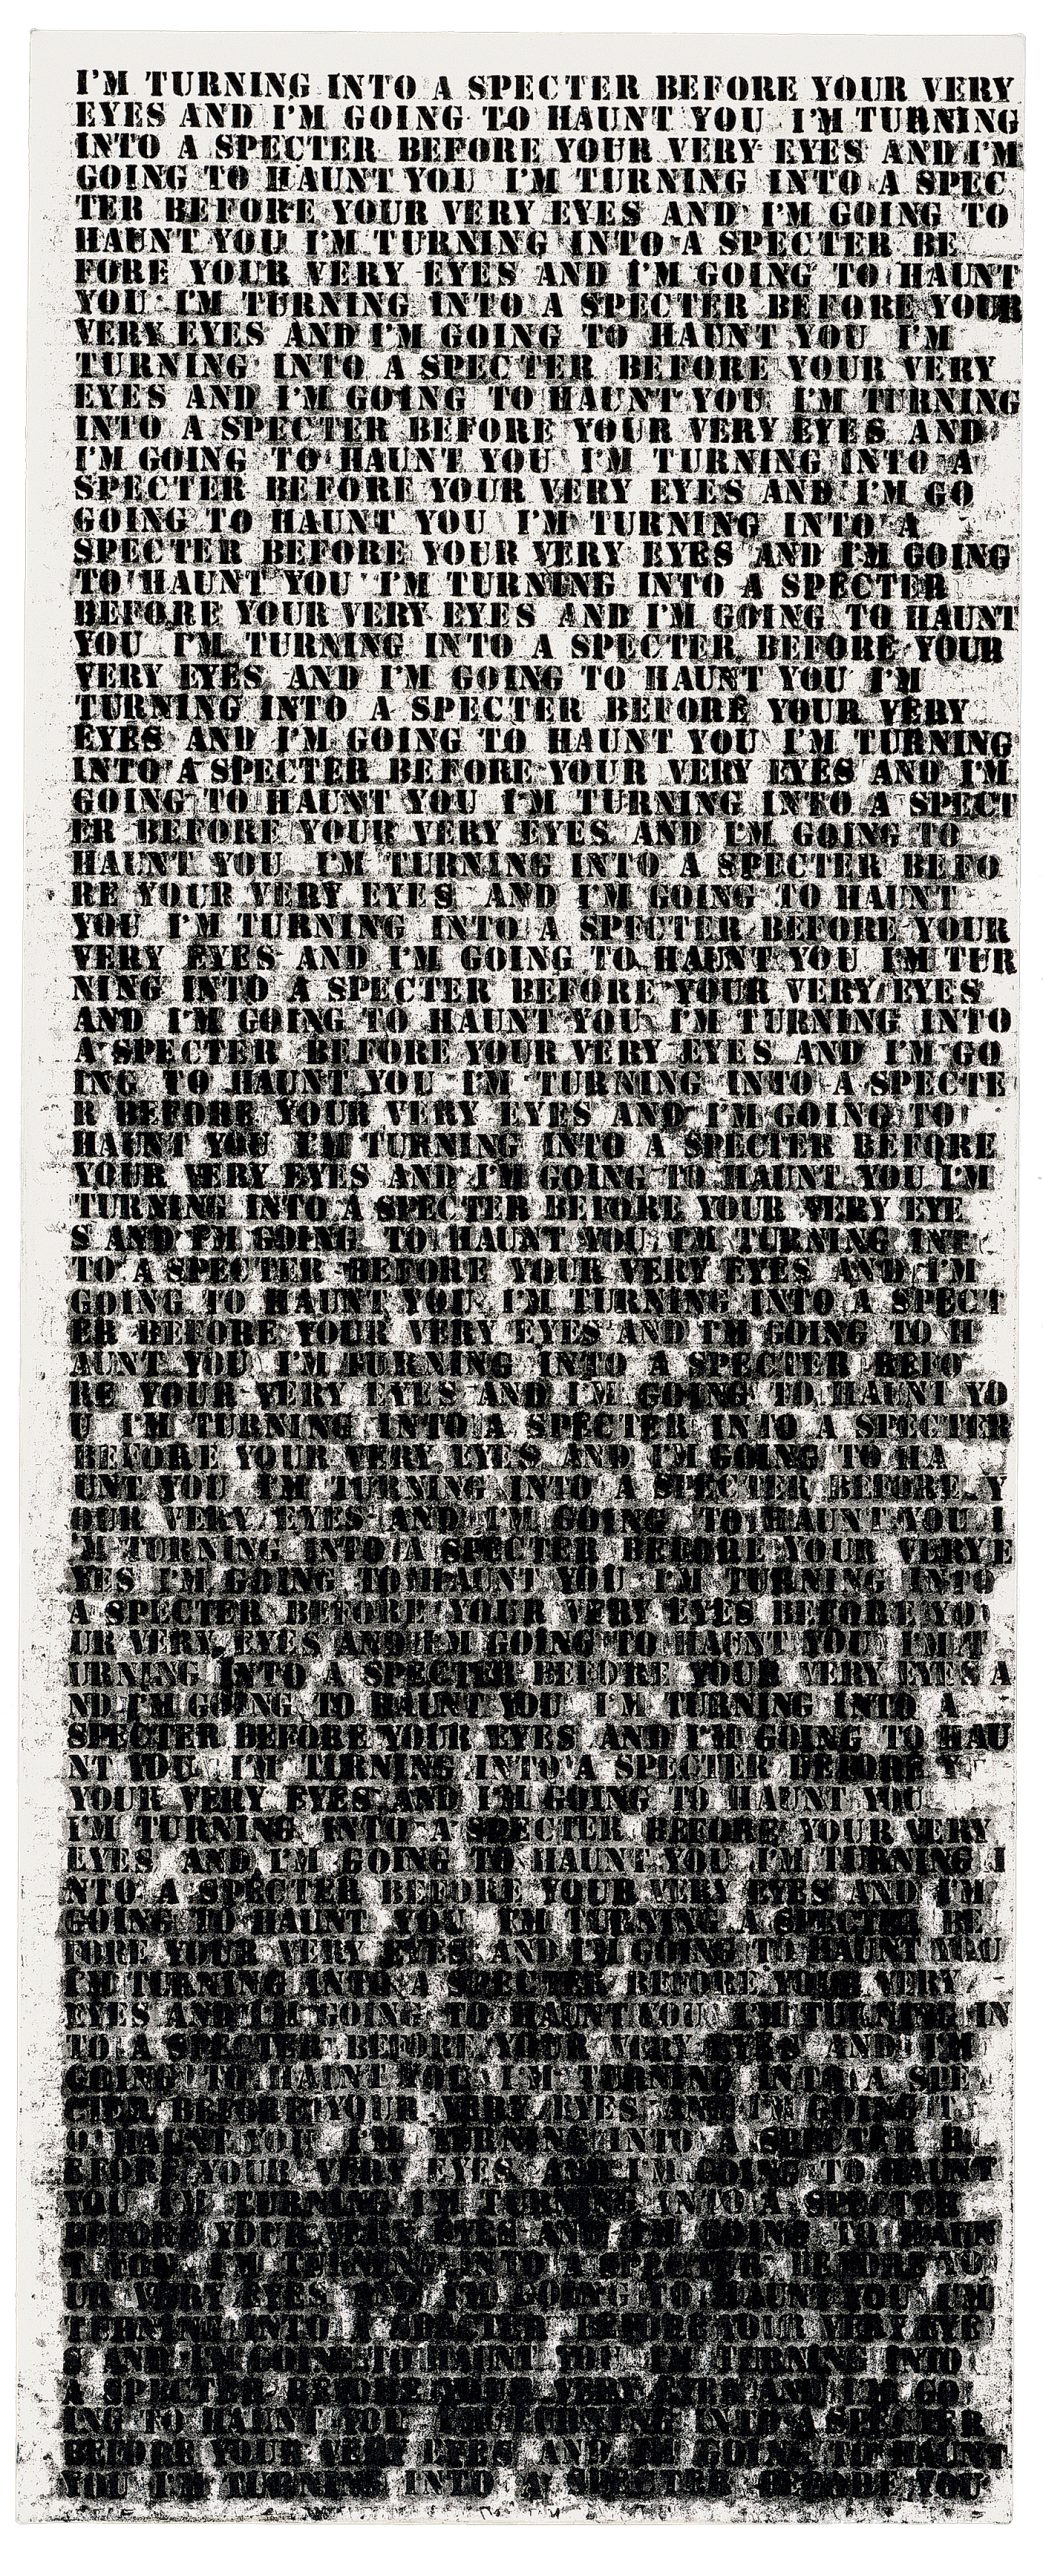 I'M TURNING INTO A SPECTER BEFORE YOUR VERY
EYES AND I'M GOING TO HAUNT YOU I'M TURNING
INTO A SPECTER BEFORE YOUR VERY EYES AND I'M
GOING TO HAUNT YOU I'M TURNING INTO A SPEC
TER BEFORE YOUR VERY EYES AND I'M GOING TO
HAUNT YOU I'M TURNING INTO A SPECTER BE
FORE YOUR VERY EYES AND I'M GOING TO HAUNT
YOU I'M TURNING INTO A SPECTER BEFORE YOUR
VERY EYES AND I'M GOING TO HAUNT YOU I'M
TURNING INTO A SPECTER BEFORE YOUR VERY
EYES AND I'M GOING TO HAUNT YOU I'M TURNING
INTO A SPECTER BEFORE YOUR VERY EYES AND
I'M GOING TO HAUNT YOU I'M TURNING INTO A
SPECTER BEFORE YOUR VERY EYES AND I'M GO
GOING TO HAUNT YOU I'M TURNING INTO A
SPECTER BEFORE YOUR VERY EYES AND I'M GOING
TO HAUNT YOU I'M TURNING INTO A SPECTER
BEFORE YOUR VERY EYES AND I'M GOING TO HAUNT
YOU I'M TURNING INTO A SPECTER BEFORE YOUR
VERY EYES AND I'M GOING TO HAUNT YOU I'M
TURNING INTO A SPECTER BEFORE YOUR VERY
EYES AND I'M GOING TO HAUNT YOU I'M TURNING
INTO A SPECTER BEFORE YOUR VERY EYES AND I'M
GOING TO HAUNT YOU I'M TURNING INTO A SPECT
ER BEFORE YOUR VERY EYES AND I'M GOING TO
HAUNT YOU I'M TURNING INTO A SPECTER BEFO
RE YOUR VERY EYES AND I'M GOING TO HAUNT
YOU I'M TURNING INTO A SPECTER BEFORE YOUR
VERY EYES AND I'M GOING TO HAUNT YOU I'M TUR
NING INTO A SPECTER BEFORE YOUR VERY EYES
AND I'M GOING TO HAUNT YOU I'M TURNING INTO
A SPECTER BEFORE YOUR VERY EYES AND I'M GO
ING TO HAUNT YOU I'M TURNING INTO A SPECTE
R BEFORE YOUR VERY EYES AND I'M GOING TO
HAUNT YOU I'M TURNING INTO A SPECTER BEFORE
YOUR VERY EYES AND I'M GOING TO HAUNT YOU I'M
TURNING INTO A SPECTER BEFORE YOUR VERY EYE
S AND I'M GOING TO HAUNT YOU I'M TURNING INT
TO A SPECTER BEFORE YOUR VERY EYES AND I'M
GOING TO HAUNT YOU I'M TURNING INTO A SPECT
ER BEFORE YOUR VERY EYES AND I'M GOING TO H
AUNT YOU I'M TURNING INTO A SPECTER BEFO
RE YOUR VERY EYES AND I'M GOING TO HAUNT YO
U I'M TURNING INTO A SPECTER INTO A SPECTER
BEFORE YOUR VERY EYES AND I'M GOING TO HA
UNT YOU I'M TURNING INTO A SPECTER BEFORE Y
OUR VERY EYES AND I'M GOING TO HAUNT YOU I
'M TURNING INTO A SPECTER BEFORE YOUR VERY E
YES I'M GOING TO HAUNT YOU I'M TURNING INTO
A SPECTER BEFORE YOUR VERY EYES BEFORE YO
UR VERY EYES AND I'M GOING TO HAUNT YOU I'M T
URNING INTO A SPECTER BEFORE YOUR VERY EYES A
ND I'M GOING TO HAUNT YOU I'M TURNING INTO A
SPECTER BEFORE YOUR EYES AND I'M GOING TO HAU
NT YOU I'M TURNING INTO A SPECTER BEFORE Y
YOUR VERY EYES AND I'M GOING TO HAUNT YOU
I'M TURNING INTO A SPECTER BEFORE YOUR VERY
EYES AND I'M GOING TO HAUNT YOU I'M TURNING I
NTO A SPECTER BEFORE YOUR VERY EYES AND I'M
GOING TO HAUNT YOU I'M TURNING A SPECTER BE
FORE YOUR VERY EYES AND I'M GOING TO HAUNT YOU
I'M TURNING INTO A SPECTER BEFORE YOUR VERY
EYES AND I'M GOING TO HAUNT YOU I'M TURNING IN
TO A SPECTER BEFORE YOUR VERY EYES AND I'M
GOING TO HAUNT YOU I'M TURNING INTO A SPE
CTER BEFORE YOUR VERY EYES AND I'M GOING T
O HAUNT YOU I'M TURNING INTO A SPECTER B
EFORE YOUR VERY EYES AND I'M GOING TO HAUNT
YOU I'M TURNING I'M TURNING INTO A SPECTER
BEFORE YOUR VERY EYES AND I'M GOING TO HAUN
T YOU I'M TURNING INTO A SPECTER BEFORE YO
UR VERY EYES AND I'M GOING TO HAUNT YOU I'M
TURNING INTO A SPECTER BEFORE YOUR VERY EYE
S AND I'M GOING TO HAUNT YOU I'M TURNING INTO
A SPECTER BEFORE YOUR VERY EYES AND I'M GO
ING TO HAUNT YOU I'M TURNING INTO A SPECTER
BEFORE YOUR VERY EYES AND I'M GOING TO HAUNT
YOU I'M TURNING INTO A SPECTER BEFORE YOU